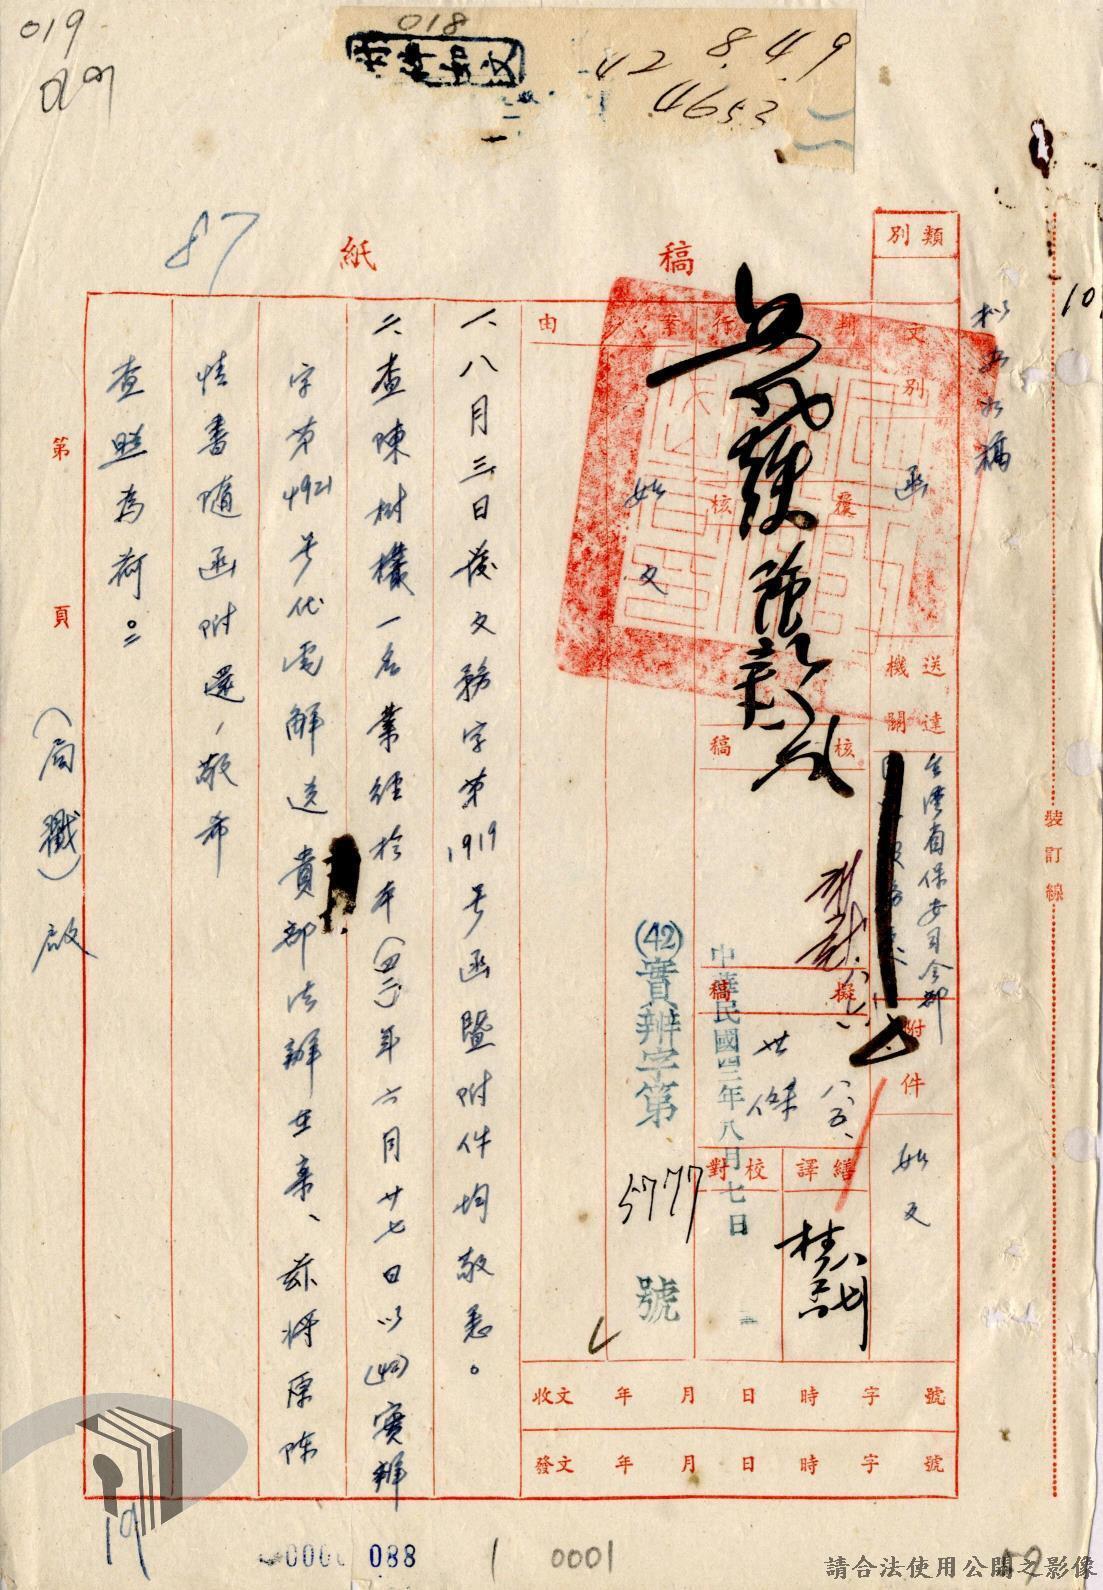 019
018
42 8.4.9
4653
87
稿紙
類別
文別
函
送達機關
台灣省保安司令部
附件
如文
判行
覆核
核稿
擬稿
世傑
八.五.
繕譯
校對
桂
八七
中華民國四二年八月七日
案由
如文
(42)實辦字第5777號
收文 年 月 日 時 字 號
發文 年 月 日 時 字 號
一、八月三日發文務字第1919号函暨附件均敬悉。
二、查陳樹欉一名業經於本(四二)年六月廿七日以(42)實辦
字第4921号代電解送貴部法辦在案、茲將原陳
情書隨函附還,敬希
查照為荷。
(局戳)啟
第 頁
裝訂線
19
088
0001
請合法使用公開之影像